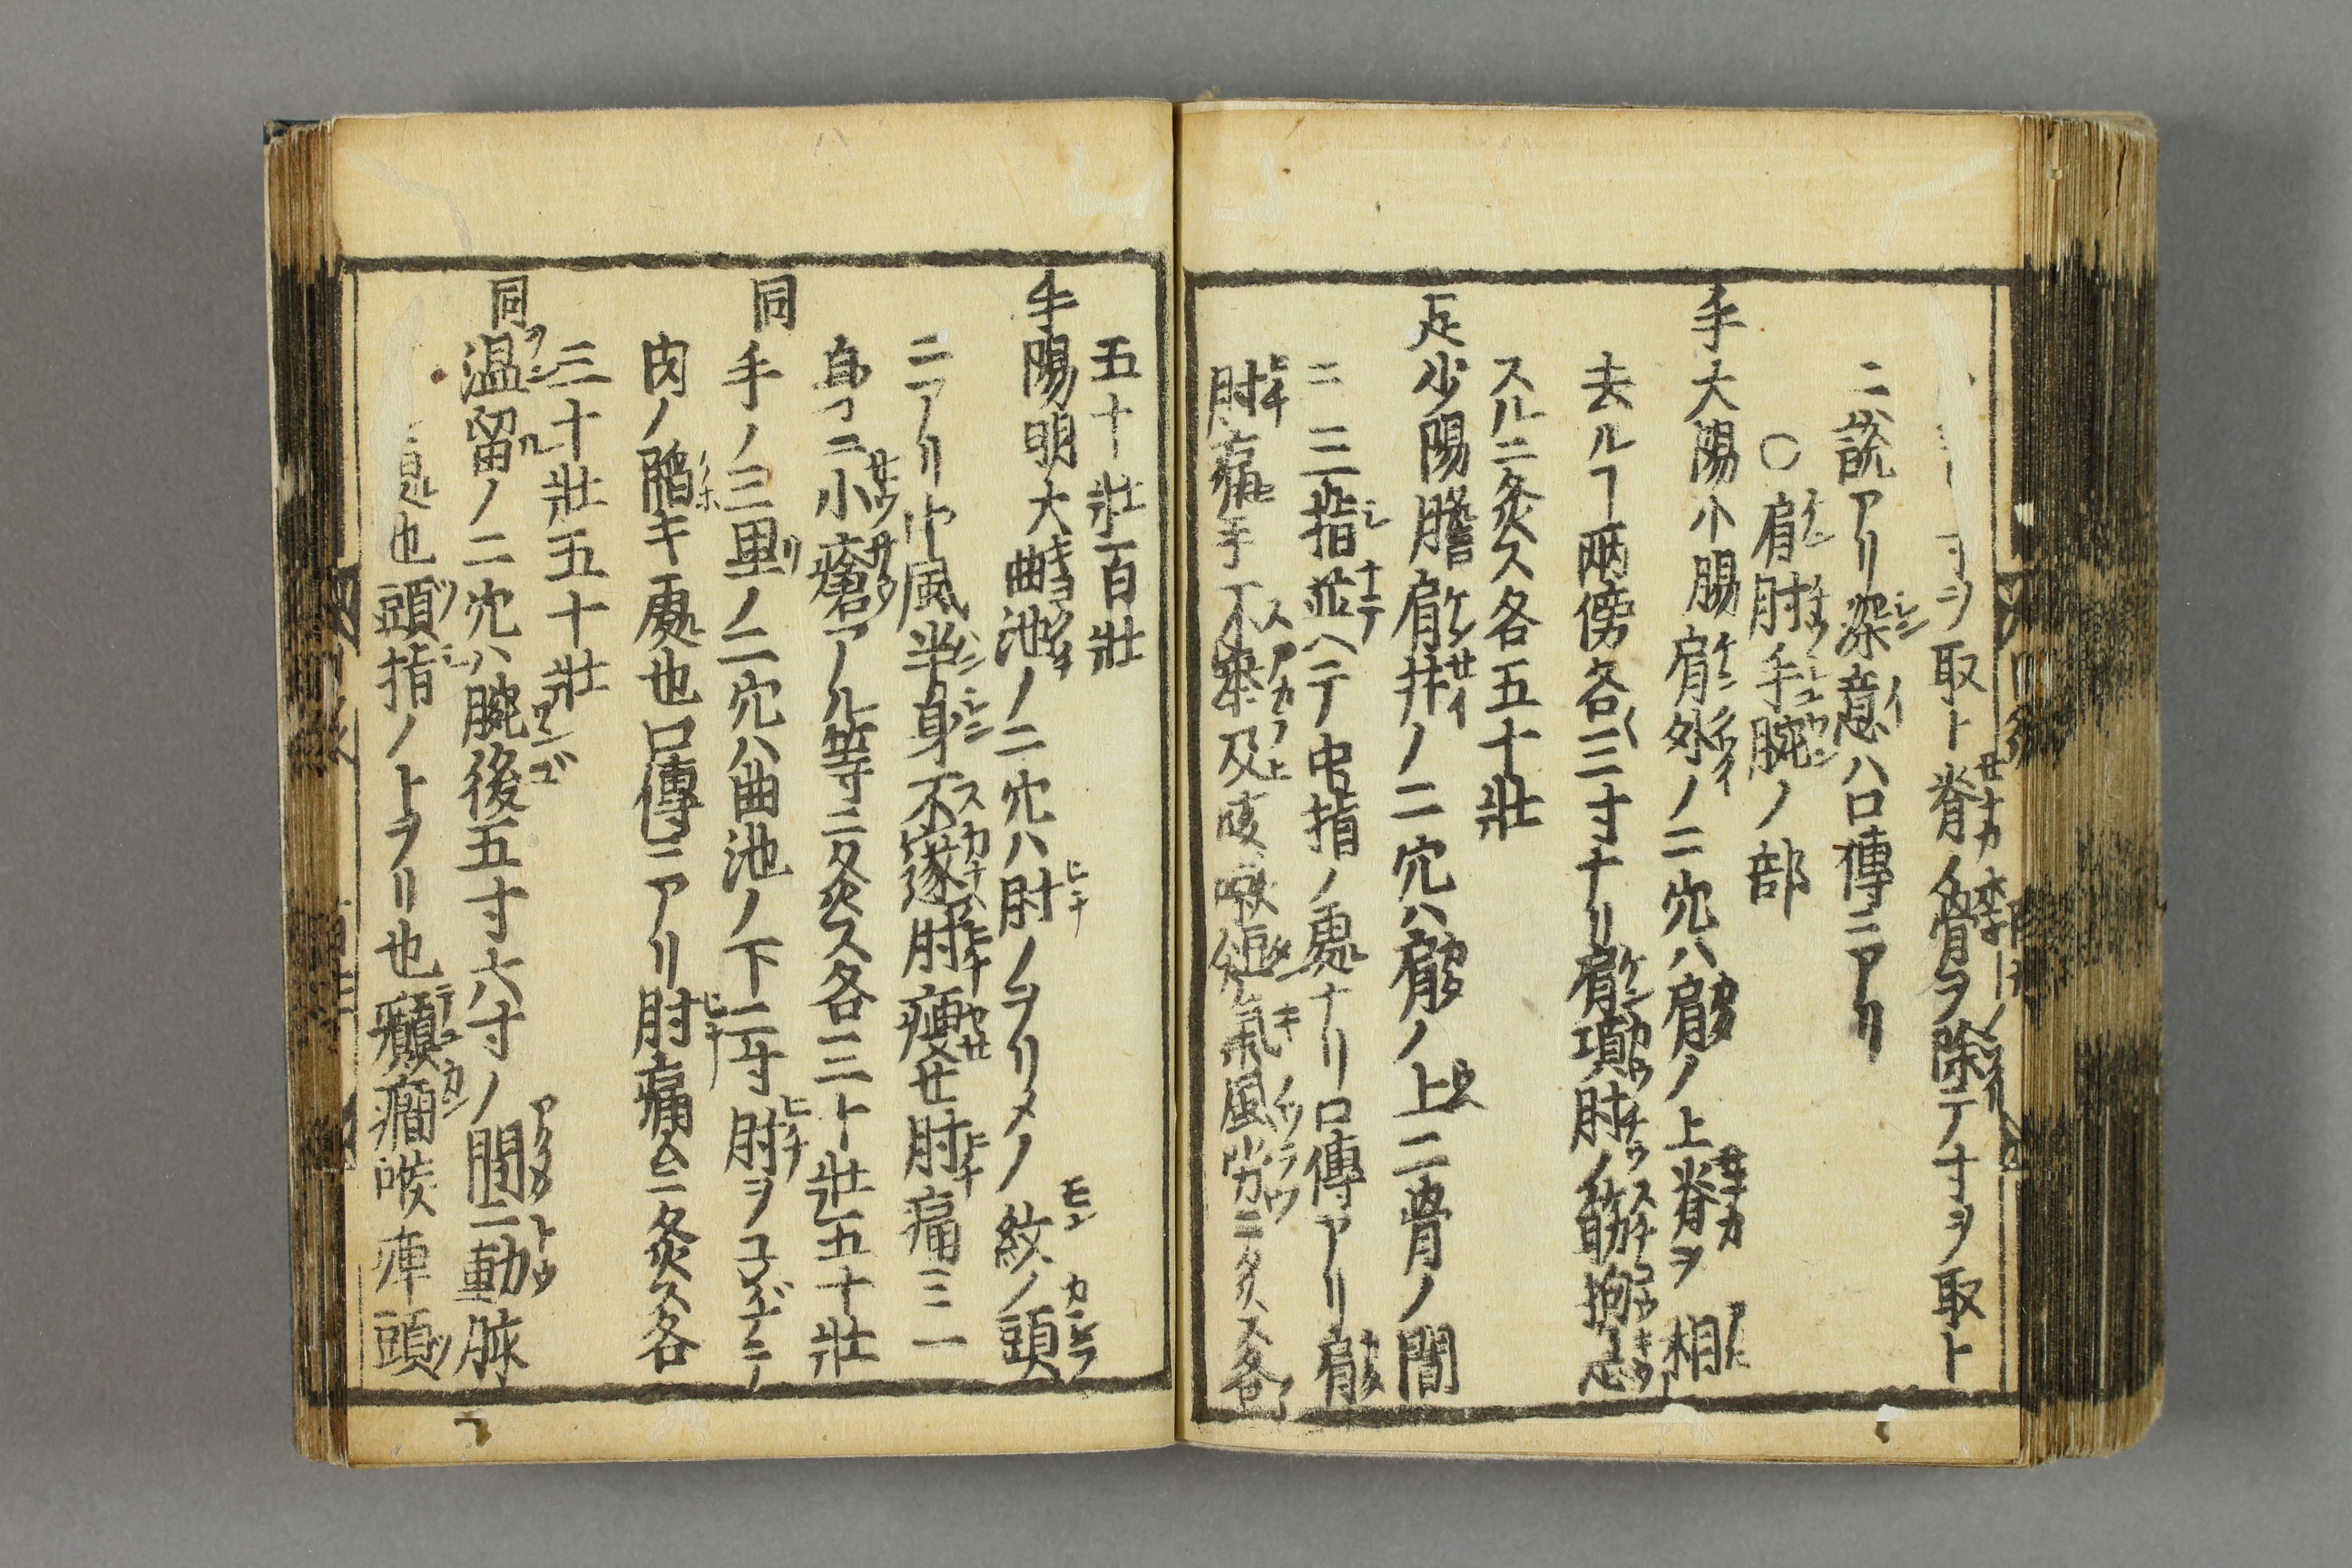 寸ヲ取ト脊ノ骨ヲ除テ寸ヲ取ト
二說アリ深意ハ口傳ニアリ
〇肩肘手腕ノ部
手大陽小腸肩外ノ二穴ハ肩ノ上脊ヲ相
去ルヿ兩傍各三寸ナリ肩項肘ノ筋拘急
スルニ灸ス各五十壯
足少陽膽肩井ノ二穴ハ肩ノ上二骨ノ間
ニ三指並ヘテ中指ノ處ナリ口傳アリ肩
肘痛手不 及 短氣風勞ニ灸ス各
五十壯百壯
手陽明大曲池ノ二穴ハ肘ノヲリメノ紋ノ頭
ニアリ中風半身不遂肘痩セ肘痛ミ一
身ニ小瘡アル等ニ灸ス各三十壯五十壯
同手ノ三里ノ二穴ハ曲池ノ下二寸肘ヲユガミテ
肉ノ起キ處也口傳ニアリ肘痛ムニ灸ス各
三十壯五十壯
同温留ノ二穴ハ腕後五寸六寸ノ間ニ動脉
也頭指ノトヲリ也癲癇喉痺頭